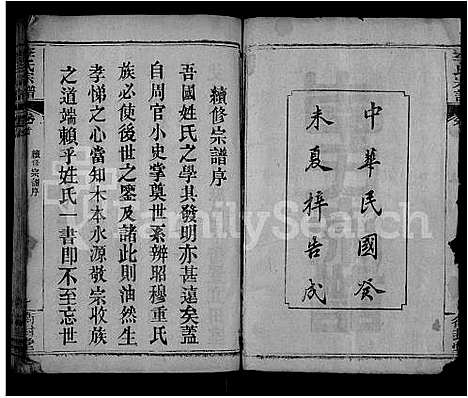 中華民國癸
未夏梓告成
續修宗譜序
吾國姓氏之學其發明亦甚遠矣蓋
自周官小史掌奠世系辨昭穆重氏
族必使後世之鑒及諸此則油然生
孝悌之心當知木本水源敬宗收族
之道端賴乎姓氏一書即不至忘世
氏宗譜
續修宗譜序
FamilySearch